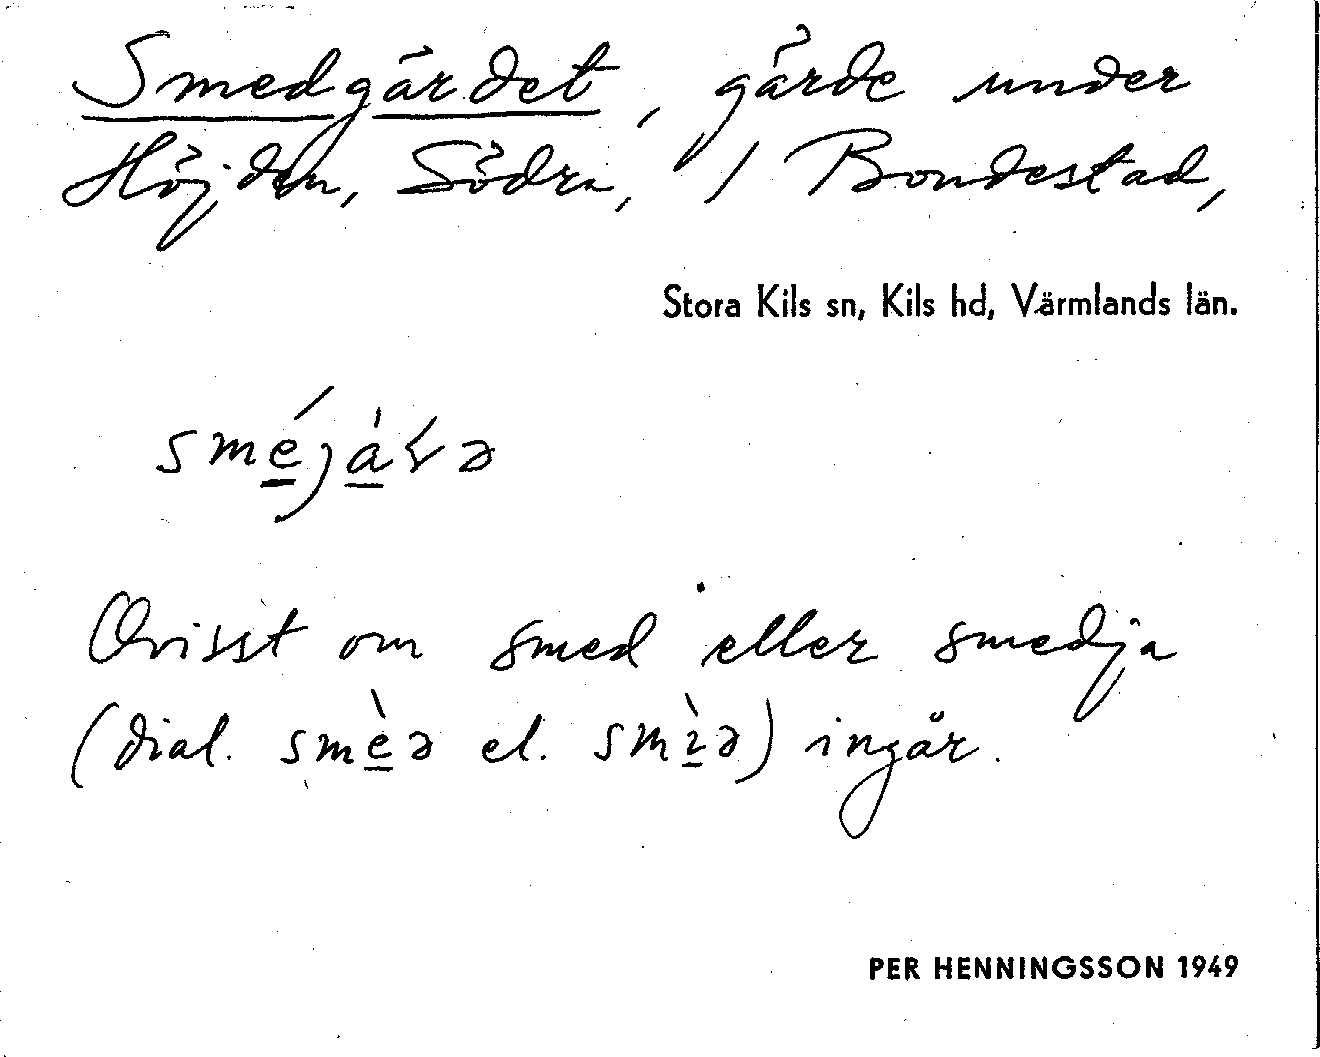 Smedgärdet, gärde under
Höjden, Södra, / Bondestad,
Stora Kils sn, Kils hd, Värmlands län.
Ovisst om smed eller smedja
(dial. smèə el. smìə) ingår.
PER HENNINGSSON 1949